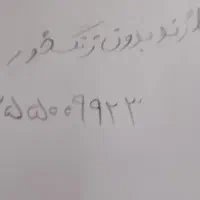 رند بدون زنگ خور
۵۵۰۰۹۹۲۳